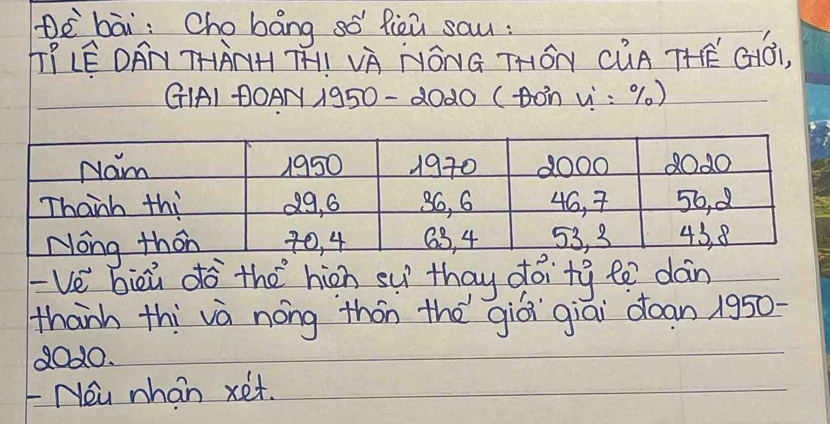 Đề bài: Cho bảng số liệu sau:
TỈ LỆ DÂN THÀNH THỊ VÀ NÔNG THÔN CỦA THẾ GIỚI,
GIAI ĐOẠN 1950 - 2020 (Đơn vị: %)
Năm 1950 1970 2000 2020
Thành thị 29,6 36,6 46,7 56,2
Nông thôn 70,4 63,4 53,3 43,8
- Vẽ biểu đồ thể hiện sự thay đổi tỷ lệ dân
thành thị và nông thôn thế giới giai đoạn 1950-
2020.
- Nêu nhận xét.